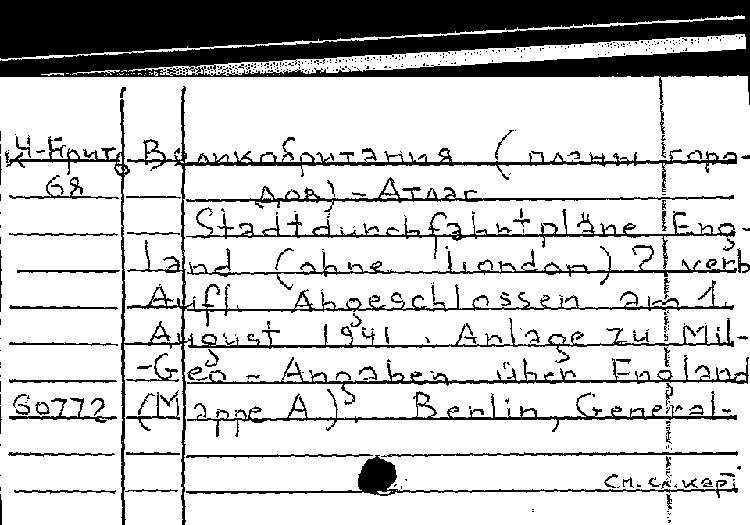 К4-Брит Великобритания (планы горо-
68 дов) - Атлас
Stadtdurchfahrtpläne Eng-
land (ohne London) 2 verb
Aufl. Abgeschlossen am 1.
August 1941. Anlage zu Mil-
-Geo-Angaben über England
60772 (Mappe A). Berlin, General-
См. сл. карт